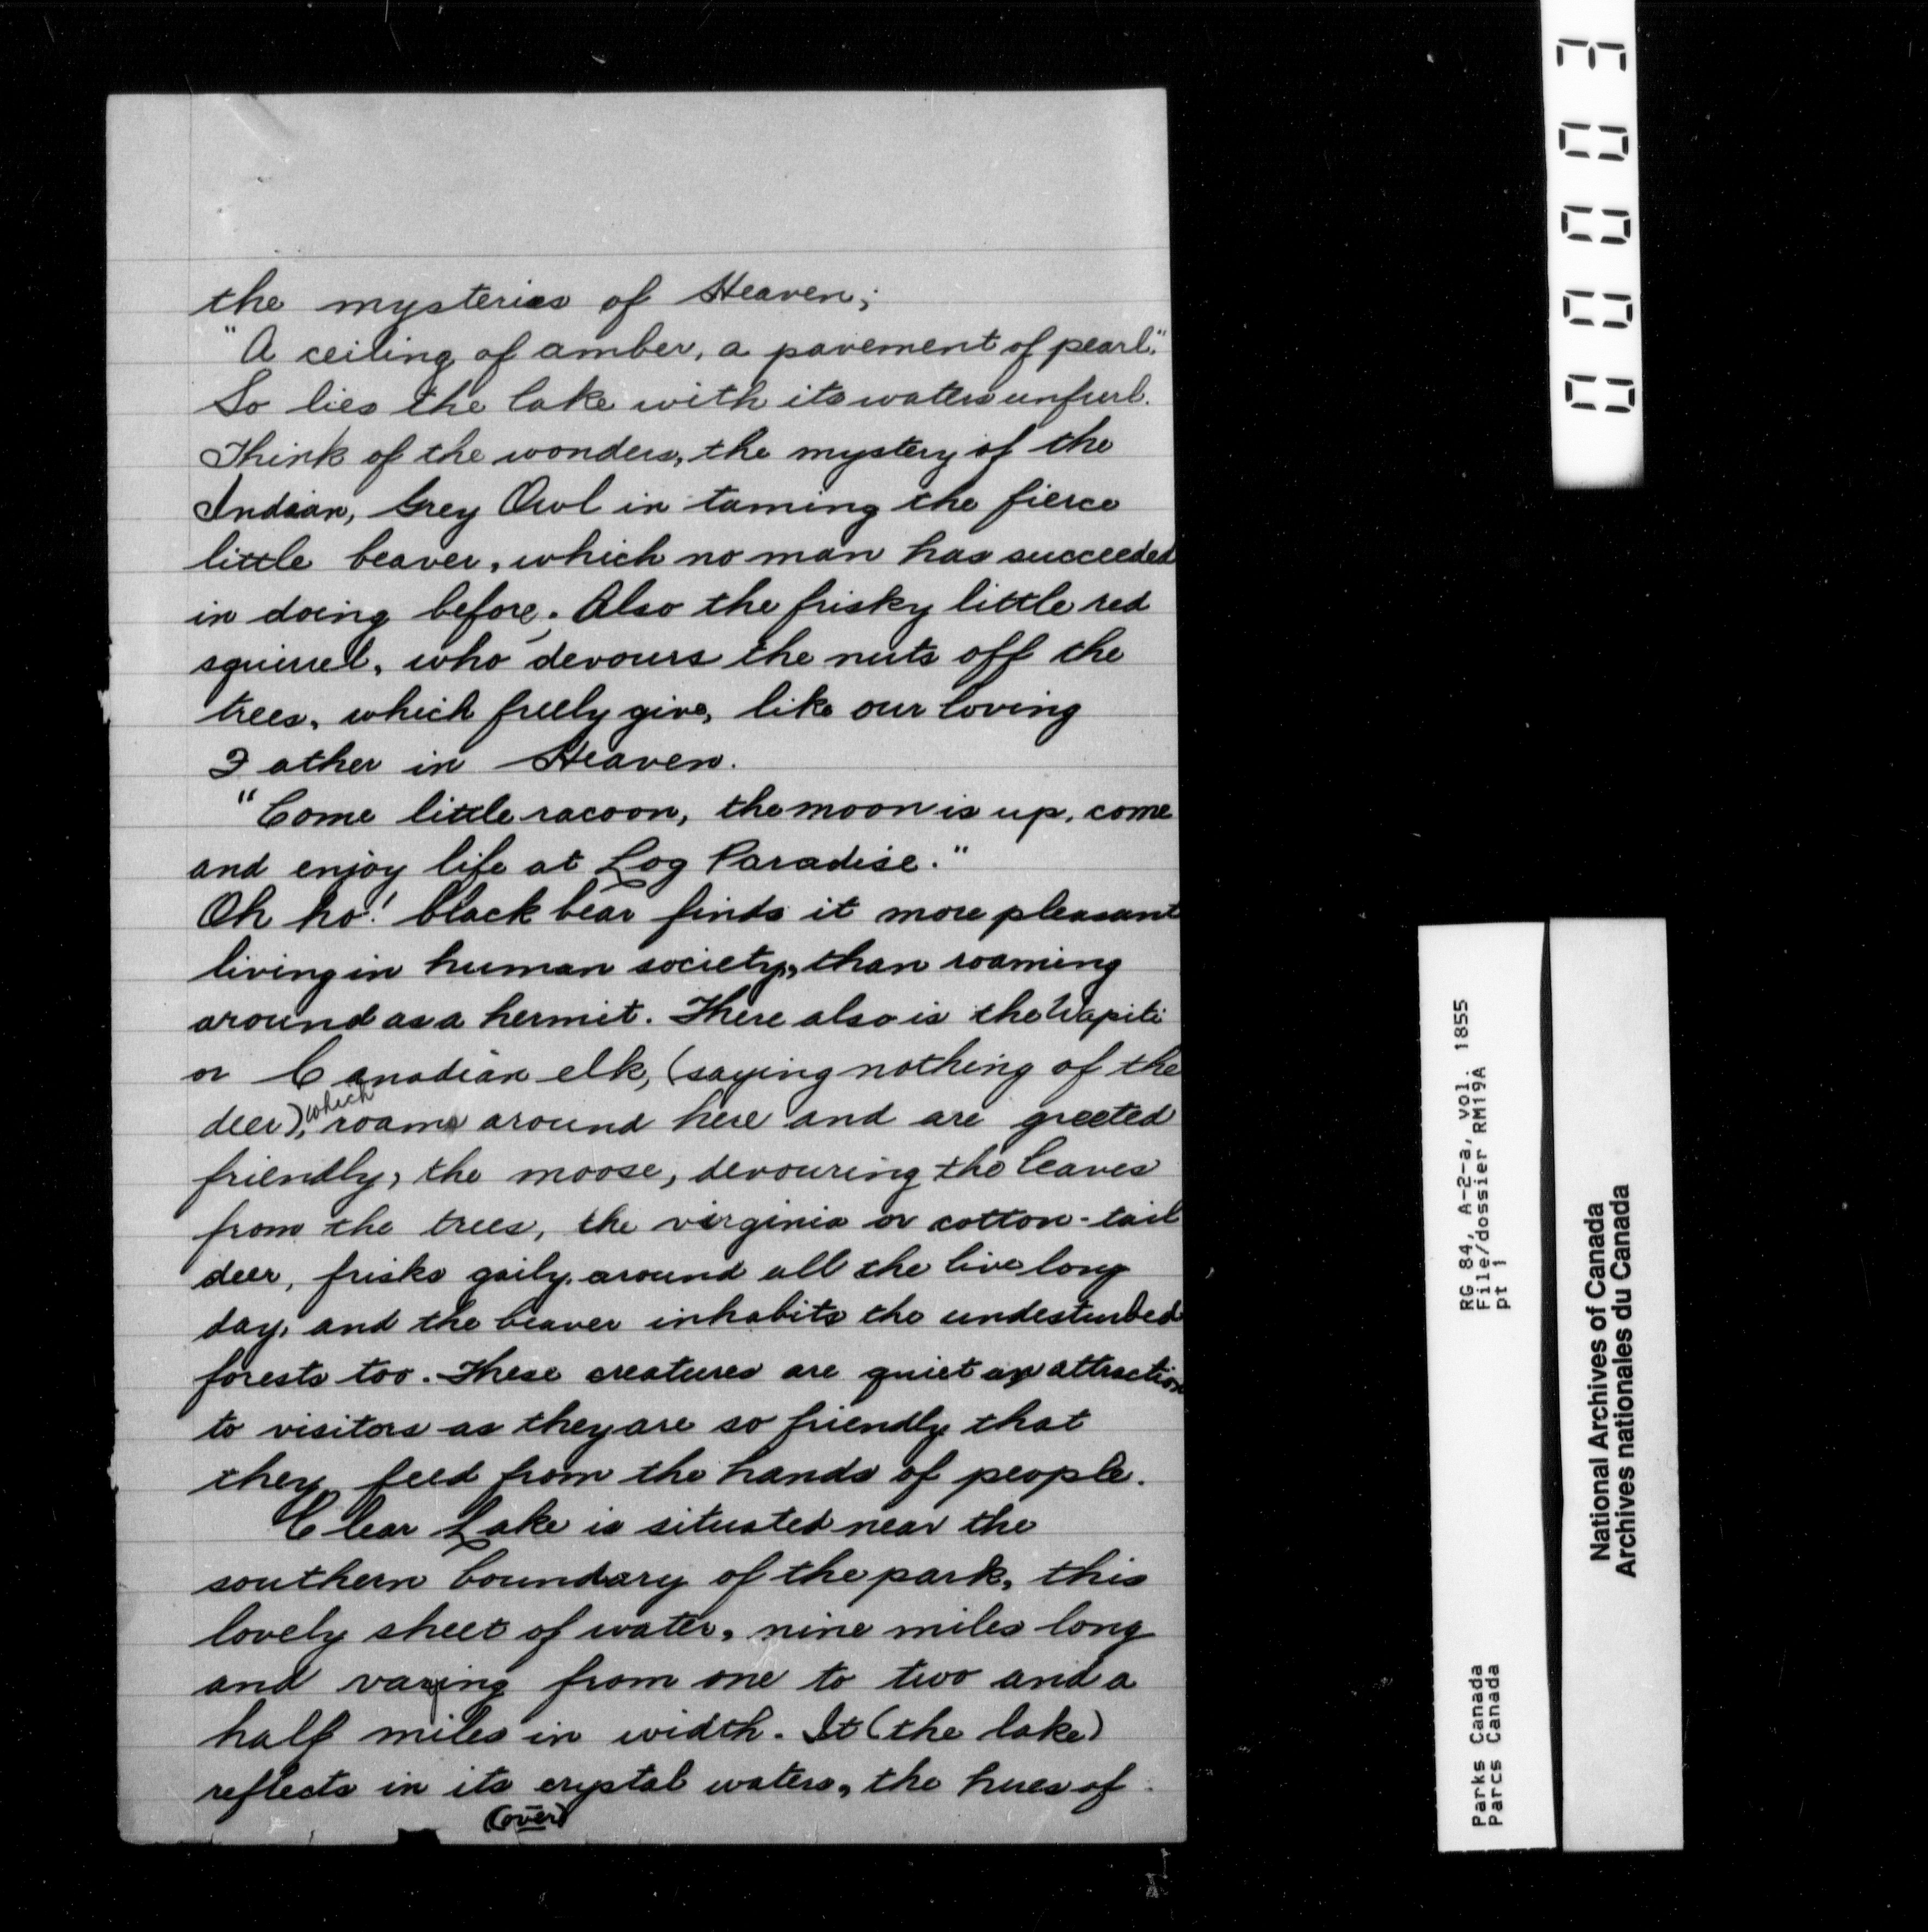 the mysteries of Heaven;
"A ceiling of amber, a pavement of pearl."
So lies the lake with its waters unfurl.
Think of the wonders, the mystery of the
Indian, Grey Owl in taming the fierce
little beaver, which no man has succeeded
in doing before. Also the frisky little red
squirrel, who devours the nuts off the
trees, which freely give, like our loving
Father in Heaven.
"Come little racoon, the moon is up, come
and enjoy life at Log Paradise."
Oh ho! black bear finds it more pleasant
living in human society, than roaming
around as a hermit. There also is the Wapiti
or Canadian elk, (saying nothing of the
deer), which roam around here and are greeted
friendly, the moose, devouring the leaves
from the trees, the virginia or cotton-tail
deer, frisks gaily around all the live long
day, and the beaver inhabits the undesturbed
forests too. These creatures are quiet an attraction
to visitors as they are so friendly that
they feed from the hands of people.
Clear Lake is situated near the
southern boundary of the park, this
lovely sheet of water, nine miles long
and varying from one to two and a
half miles in width. It (the lake)
reflects in its crystal waters, the hues of
(over)
00003
RG 84, A-2-a, vol. 1855
File/dossier RM19A
pt 1
Parks Canada
Parcs Canada
National Archives of Canada
Archives nationales du Canada